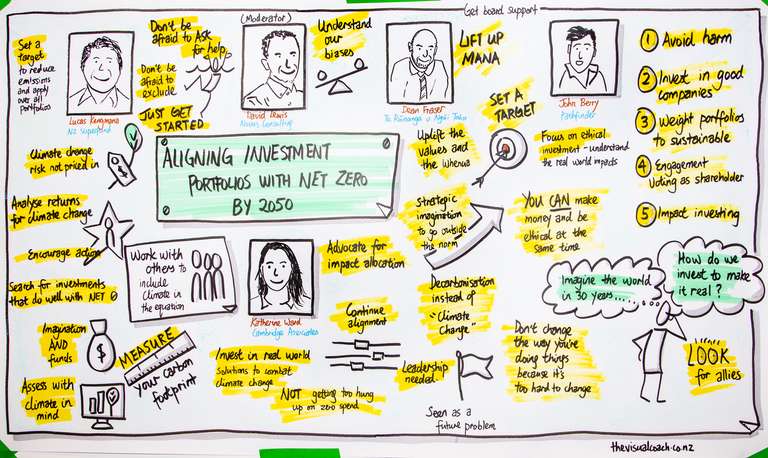 Get board support
Set a
Target
to reduce
emissions
and apply
over all
Portfolios
Don't be
afraid to Ask
for help
Don't be
afraid to
exclude
JUST GET
STARTED
(Moderator)
Understand
our
biases
LIFT UP
MANA
SET A
TARGET
Lucas Kengmana
NZ Superfund
David Lewis
Consulting
Dean Fraser
Te Rūnanga o Ngāi Tahu
John Berry
Pathfinder
1 Avoid harm
2 Invest in good
companies
3 Weight portfolios
to sustainable
4 Engagement
Voting as shareholder
5 Impact investing
Climate change
risk not priced in
ALIGNING INVESTMENT
PORTFOLIOS WITH NET ZERO
BY 2050
Uplift the
values and
the whenua
Focus on ethical
investment - understand
the real world impacts
Analyse returns
for climate change
Encourage action
Search for investments
that do well with NET 0
Strategic
imagination
to go outside
the norm
YOU CAN make
money and be
ethical at the
same time
Work with
others to
include
Climate in
the equation
Katherine Ward
Cambridge Associates
Advocate for
impact allocation
Decarbonisation
instead of
"Climate
Change"
Imagine the world
in 30 years.....
How do we
invest to make
it real?
Imagination
AND
funds
$
MEASURE
your carbon
footprint
Assess with
climate in
mind
Continue
alignment
Invest in real world
Solutions to combat
climate change
NOT getting too hung
up on zero spend
Leadership
needed
Seen as a
future problem
Don't change
the way you're
doing things
because it's
too hard to change
LOOK
for allies
thevisualcoach.co.nz